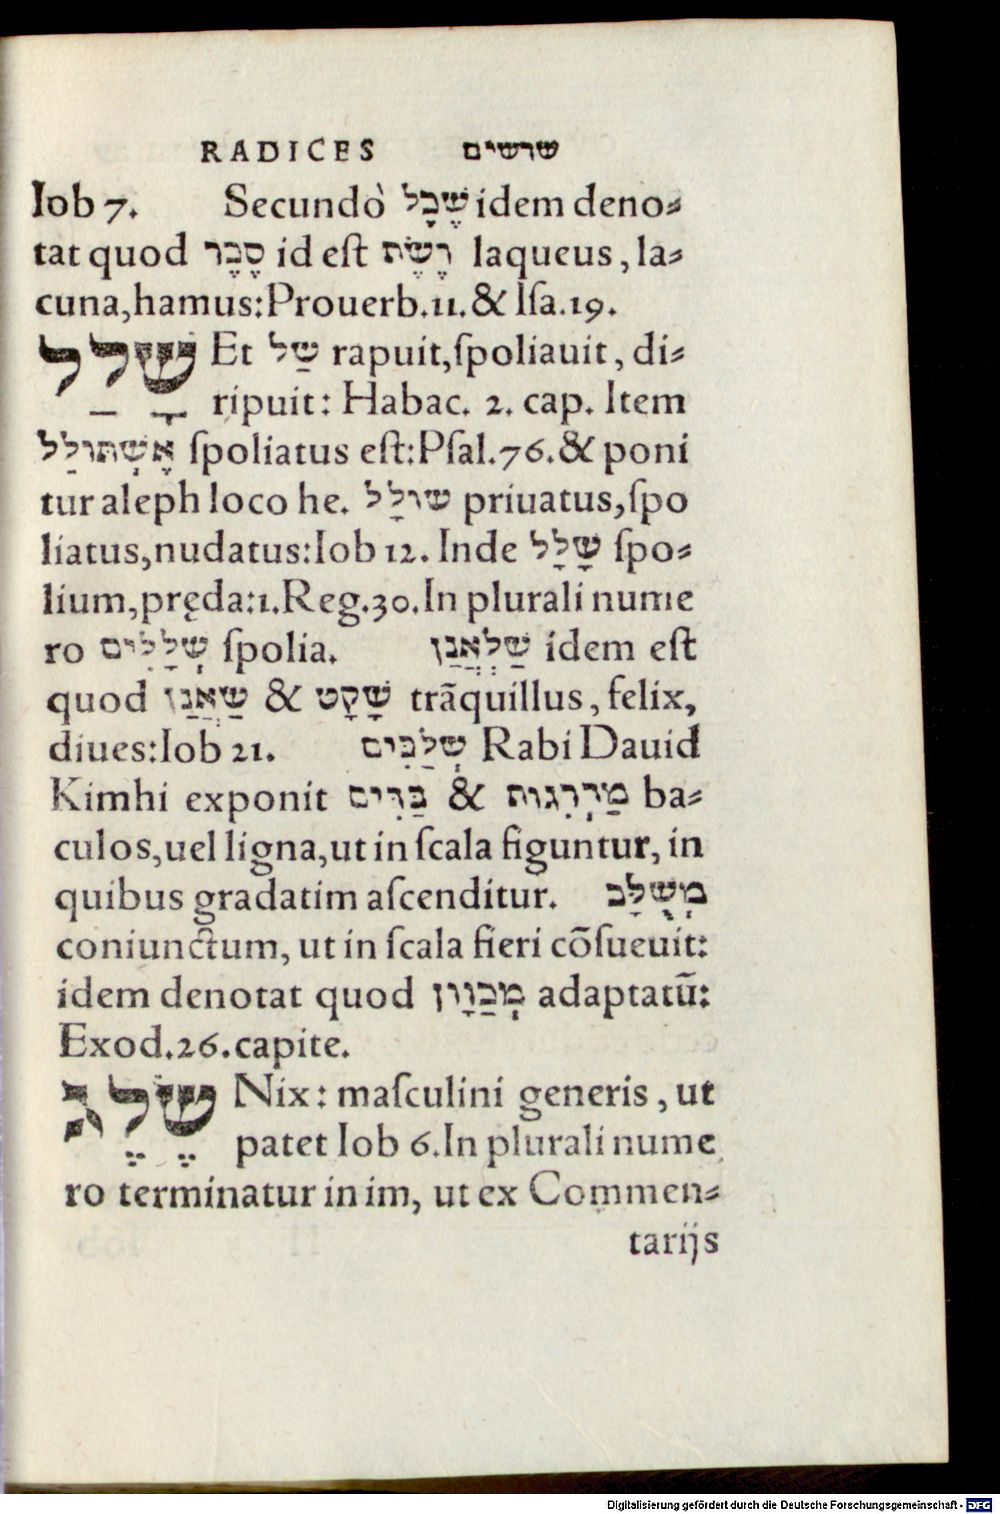 RADICES שרשים
Iob 7. Secundò שֶׂכָל idem deno⸗
tat quod סֶבֶר id eſt רֶשֶׁת laqueus, la⸗
cuna, hamus: Prouerb. 11. & Iſa. 19.
שָׁלַל Et שַׁל rapuit, ſpoliauit, di⸗
ripuit: Habac. 2. cap. Item
אֶשְׁתּוֹלַל ſpoliatus eſt: Pſal. 76. & poni
tur aleph loco he. שׁוֹלָל priuatus, ſpo
liatus, nudatus: Iob 12. Inde שָׁלָל ſpo⸗
lium, pręda: 1. Reg. 30. In plurali nume
ro שְׁלָלִים ſpolia. שַׁלְאֲנַן idem eſt
quod שַׁאֲנַן & שָׁקָט trãquillus, felix,
diues: Iob 21. שְׁלַבִּים Rabi Dauid
Kimhi exponit בַּדִּים & מַדְרִגוֹת ba⸗
culos, uel ligna, ut in ſcala figuntur, in
quibus gradatim aſcenditur. מְשֻׁלָּב
coniunctum, ut in ſcala fieri cõſueuit:
idem denotat quod מְכַוָּון adaptatũ:
Exod. 26. capite.
שֶׁלֶג Nix: maſculini generis, ut
patet Iob 6. In plurali nume
ro terminatur in im, ut ex Commen⸗
tarijs
Digitalisierung gefördert durch die Deutsche Forschungsgemeinschaft - DFG